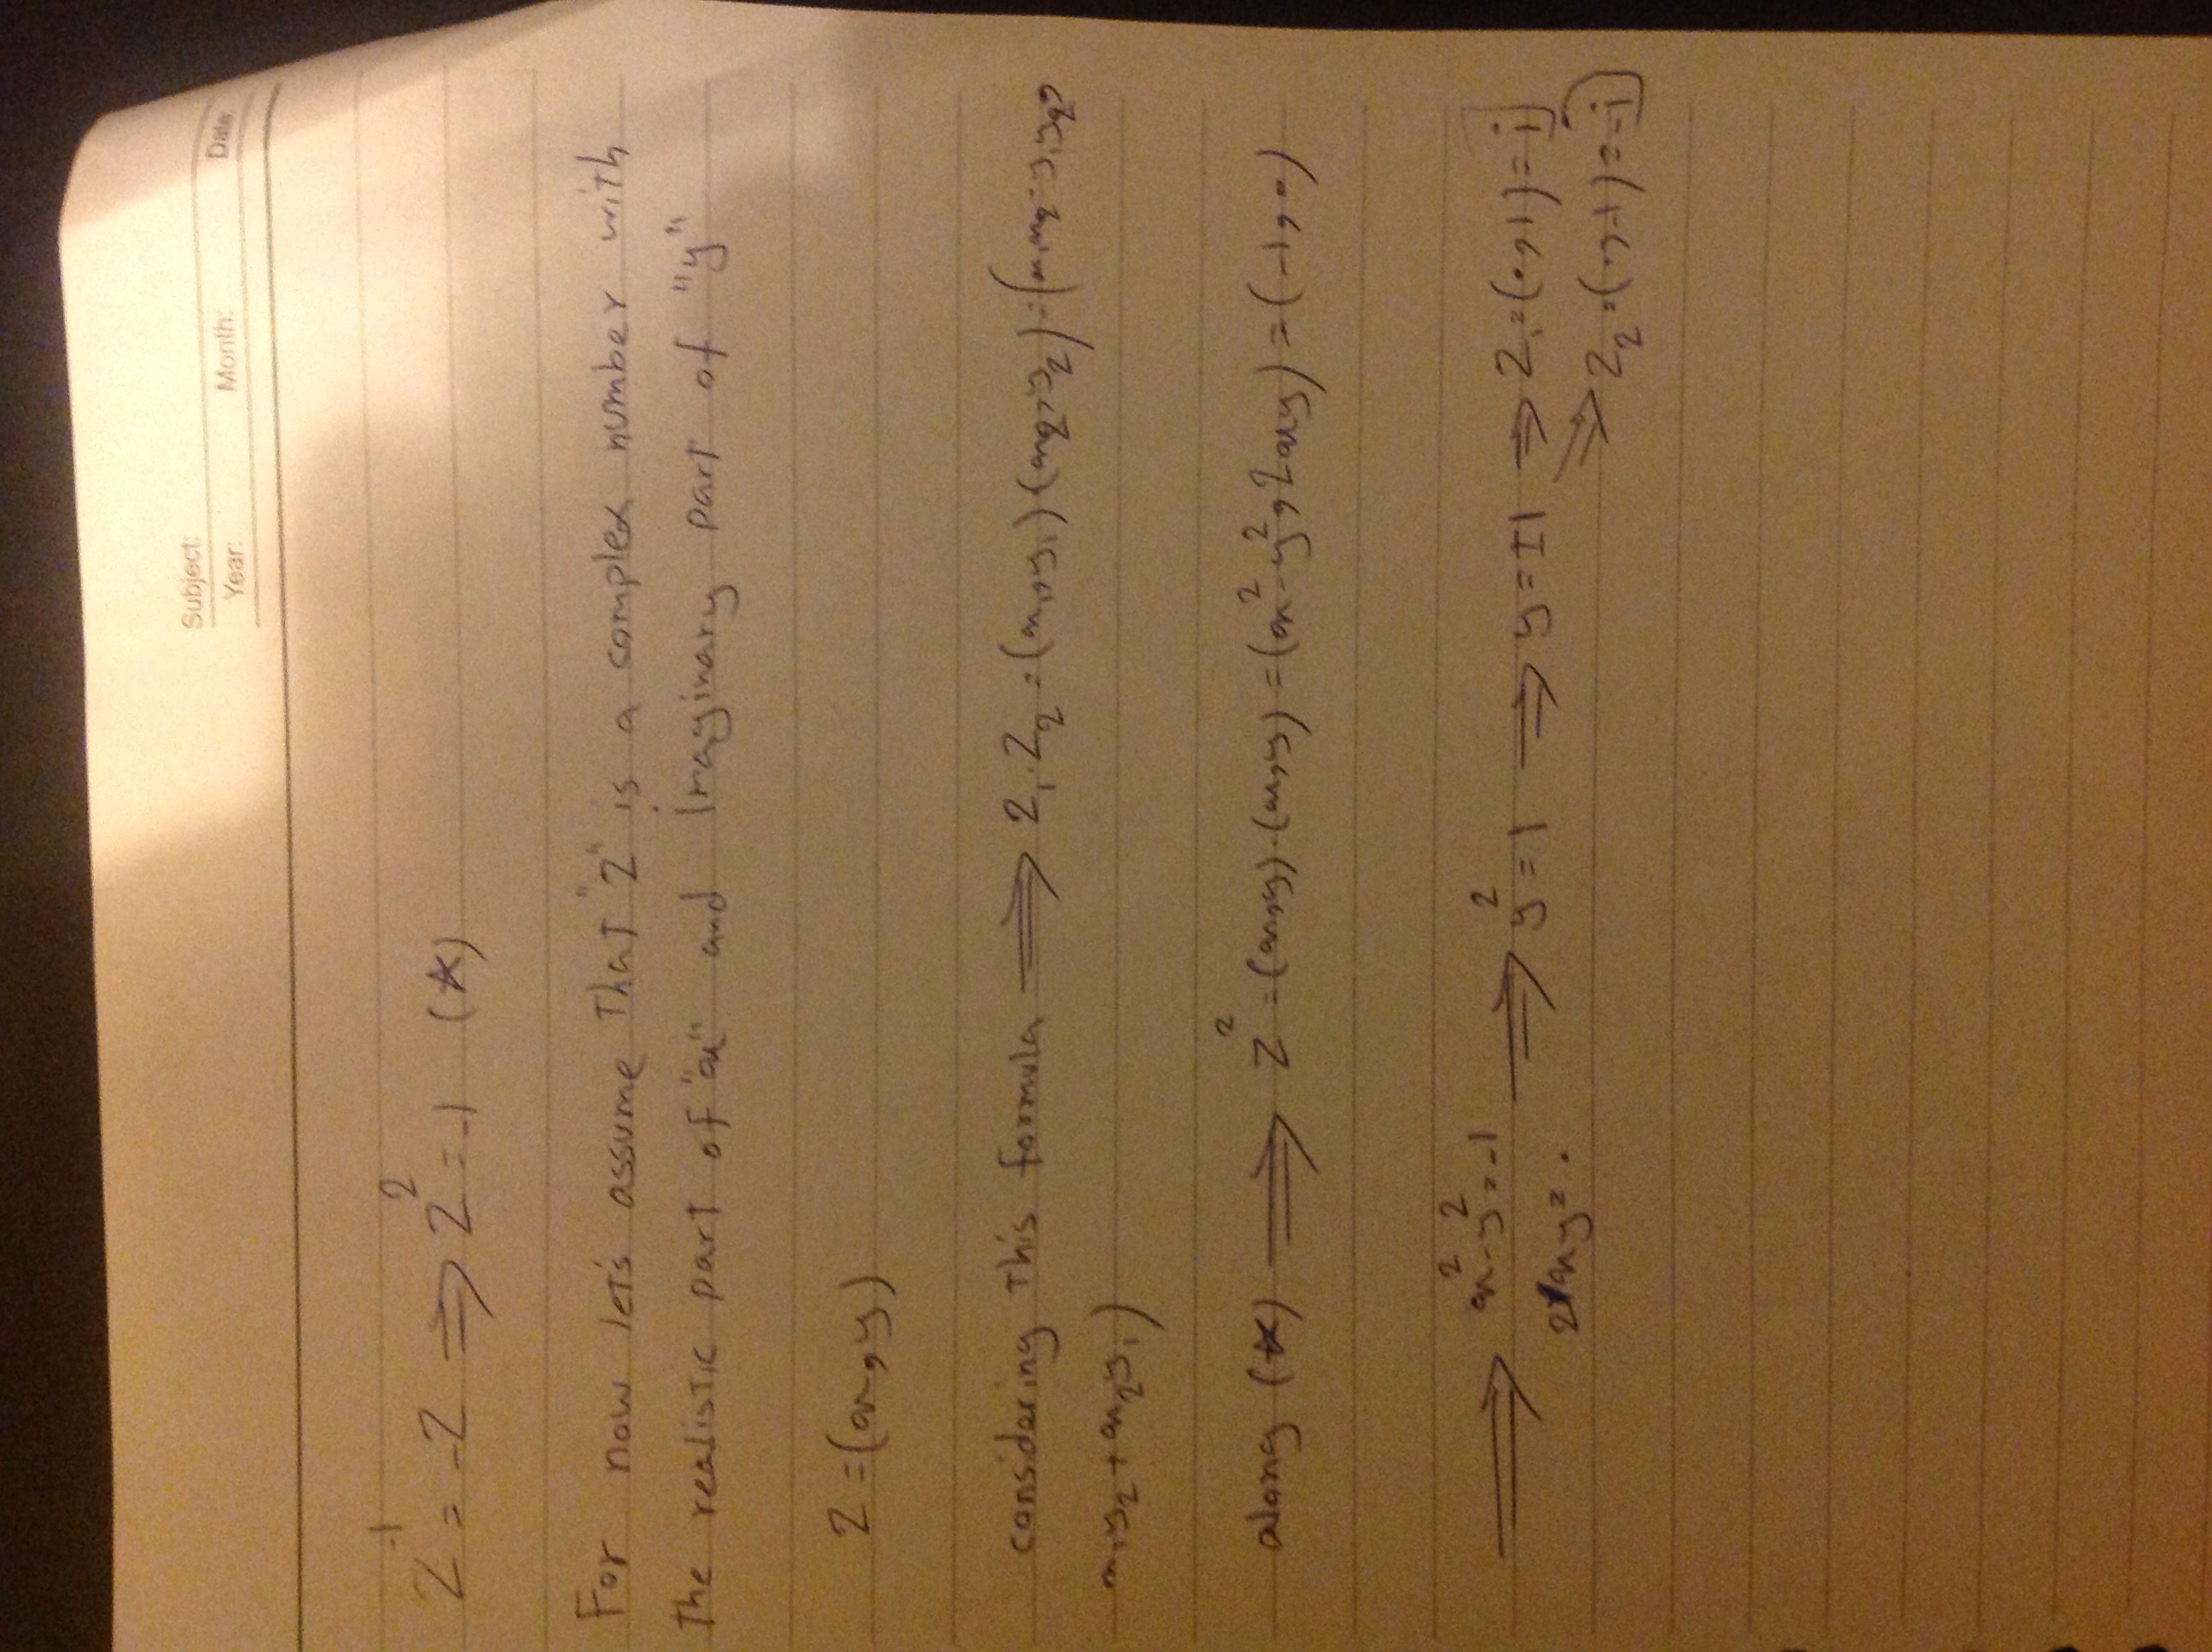 Subject:
Year: Month: Date
z⁻¹ = -z ⟹ z² = -1 (*)
For now let's assume That "z" is a complex number with
The realistic part of "x" and Imaginary part of "y"
z = (x, y)
considering This formula ⟹ z₁.z₂ = (x₁, y₁)(x₂, y₂) = (x₁x₂ - y₁y₂,
x₁y₂ + x₂y₁)
along (*) ⟹ z² = (x, y).(x, y) = (x² - y², 2xy) = (-1, 0)
⟹ x² - y² = -1 ⟹ y² = 1 ⟹ y = ±1 ⟹ z₁ = (0, 1) = i
2xy = 0 ⟹ z₂ = (0, -1) = -i